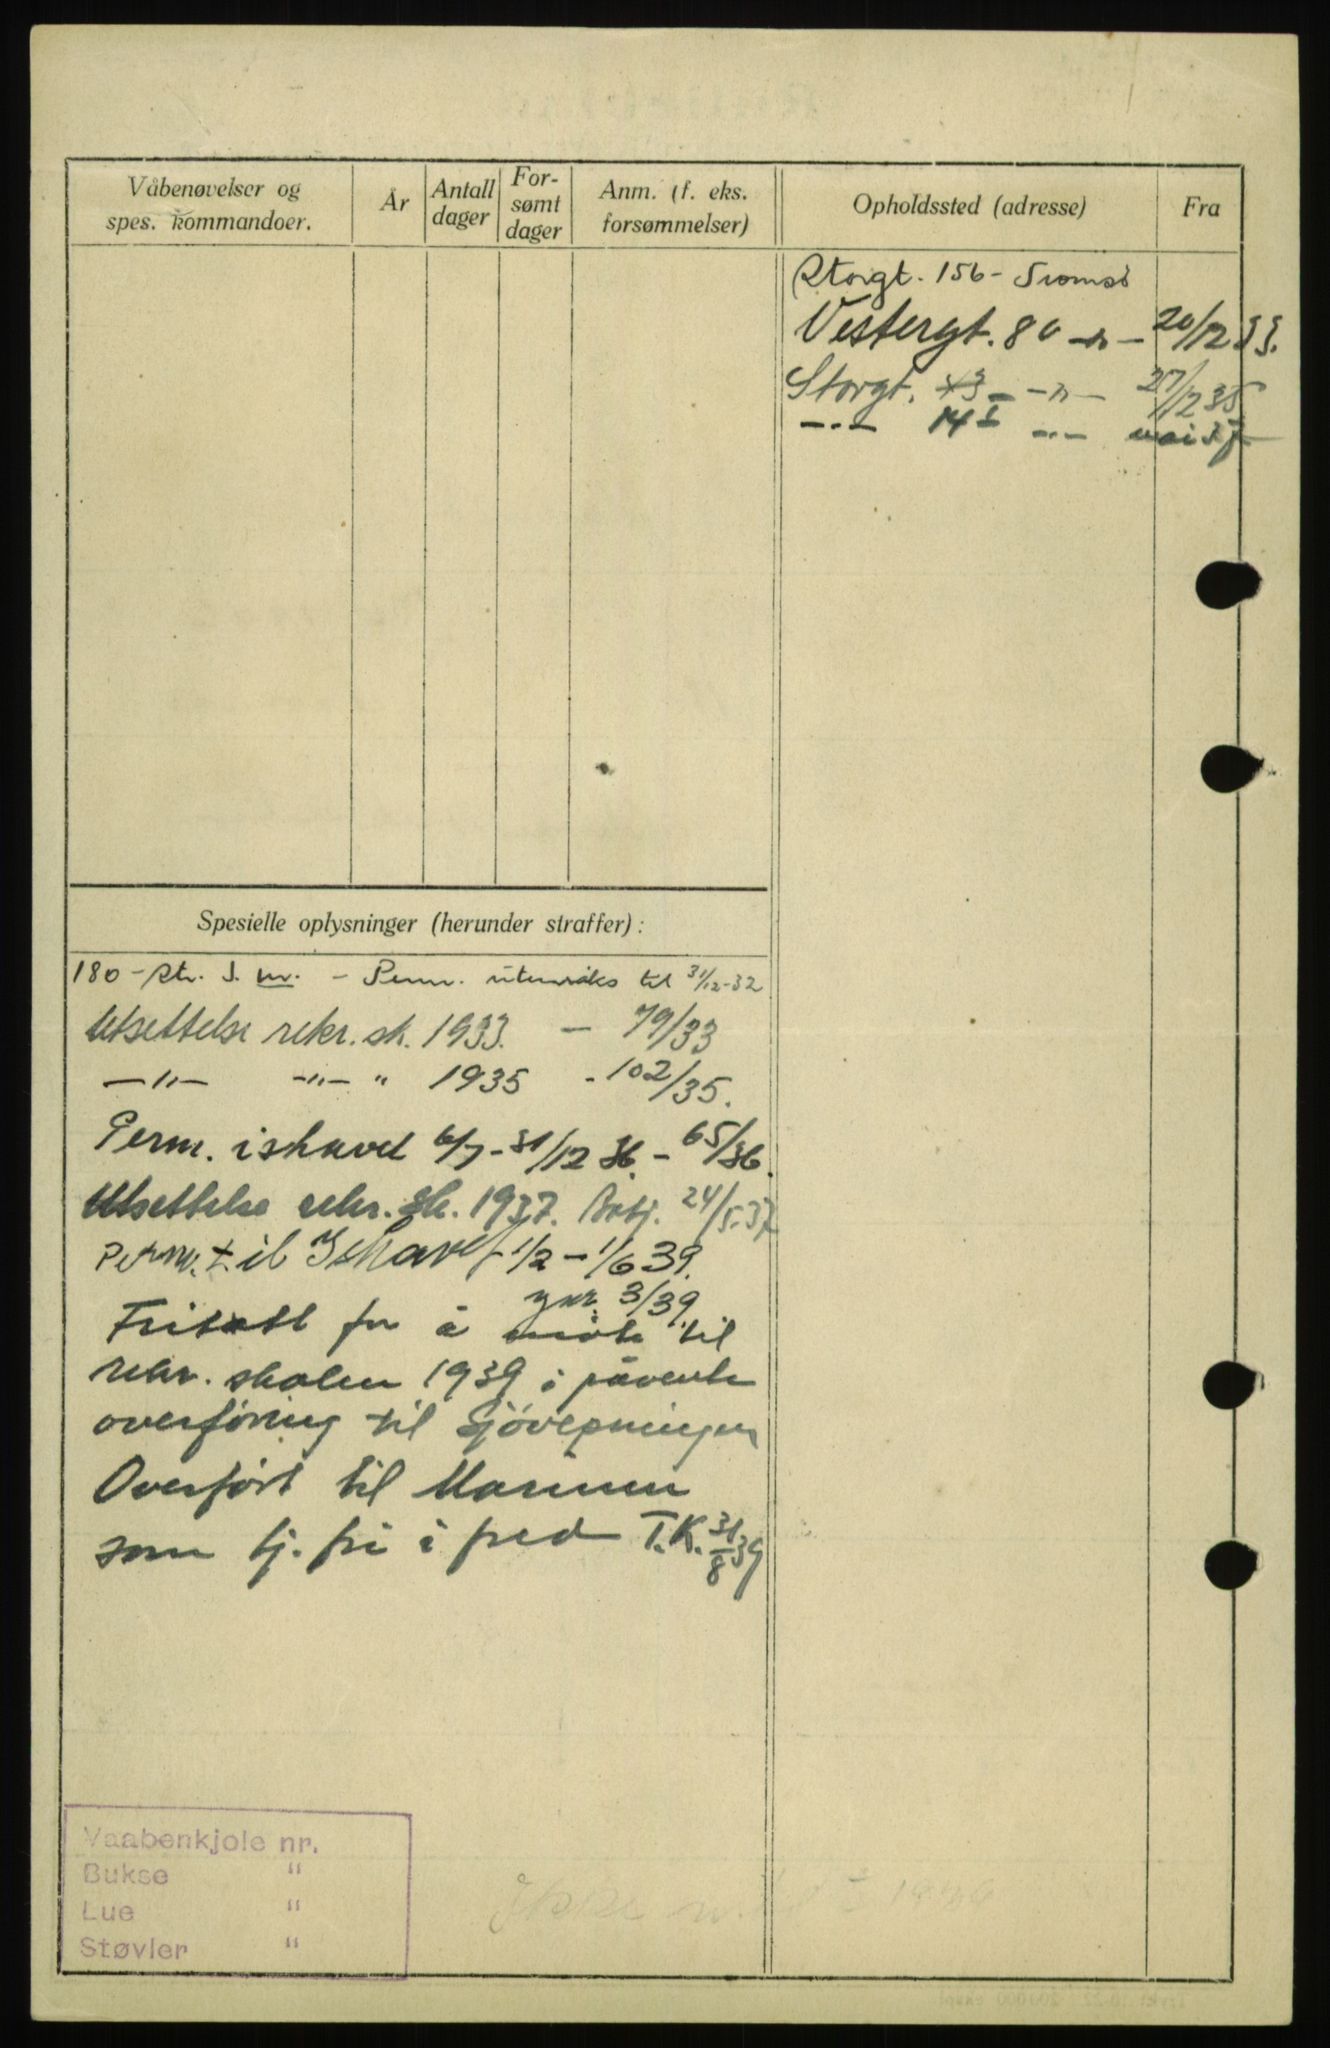 Våbenøvelser og
spes. kommandoer.
År
Antall
dager
For-
sømt
dager
Anm. (f. eks.
forsømmelser)
Opholdssted (adresse)
Fra
Storgt. 156 - Tromsö
Vestergt. 80 -"- 20/12 33.
Storgt. 43 - -"- 27/12 35
-"- 14 I -"- mai 37
Spesielle oplysninger (herunder straffer):
180 - str. 3. m. - Perm. utenriks til 31/12-32
Utsettelse rekr. sk. 1933. - 79/33
-"- -"- " 1935 - 102/35.
Perm. ishavet 6/7 - 31/12 36. - 65/36.
Utsettelse rekr. sk. 1937. 24/5-37
Perm. til Ishavet 1/2 - 1/6 39.
3/39.
Fritatt for å møte til
rekr. skolen 1939 i påvente
overføring til Sjövepningen
Overført til Marinen
som tj. fri i fred T.K. 31/8 39
Vaabenkjole nr.
Bukse "
Lue "
Støvler "
Ikke